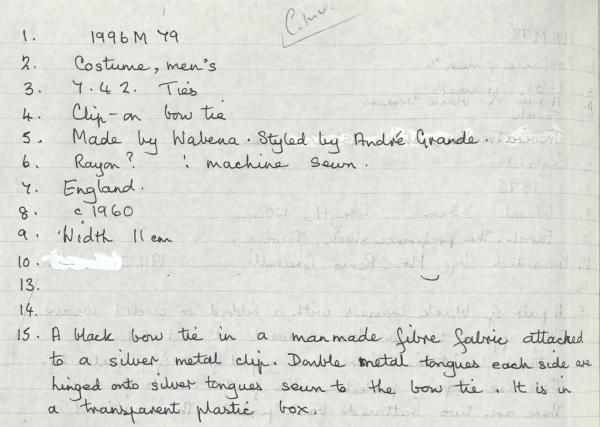 C.m.v.
1. 1996M 79
2. Costume, men's
3. 7.42. Ties
4. Clip-on bow tie
5. Made by Wabena. Styled by André Grande.
6. Rayon? : machine sewn.
7. England.
8. c 1960
9. Width 11 cm
10.
13.
14.
15. A black bow tie in a manmade fibre fabric attached
to a silver metal clip. Double metal tongues each side are
hinged onto silver tongues sewn to the bow tie. It is in
a transparent plastic box.